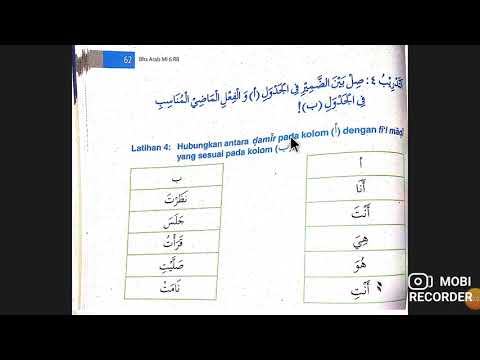 62 Bhs Arab MI 6 RB
تَدْرِيْبُ ٤ : صِلْ بَيْنَ الضَّمِيْرِ فِي الْجَدْوَلِ (أ) وَ الْفِعْلِ الْمَاضِيْ الْمُنَاسِبِ
فِي الْجَدْوَلِ (ب)!
Latihan 4: Hubungkan antara ḍamīr pada kolom (أ) dengan fi'l māḍ
yang sesuai pada kolom (ب)
أ
أَنَا
أَنْتَ
هِيَ
هُوَ
أَنْتِ
ب
نَظَرْتَ
جَلَسَ
قَرَأْتُ
صَلَّيْتِ
نَامَتْ
MOBI
RECORDER